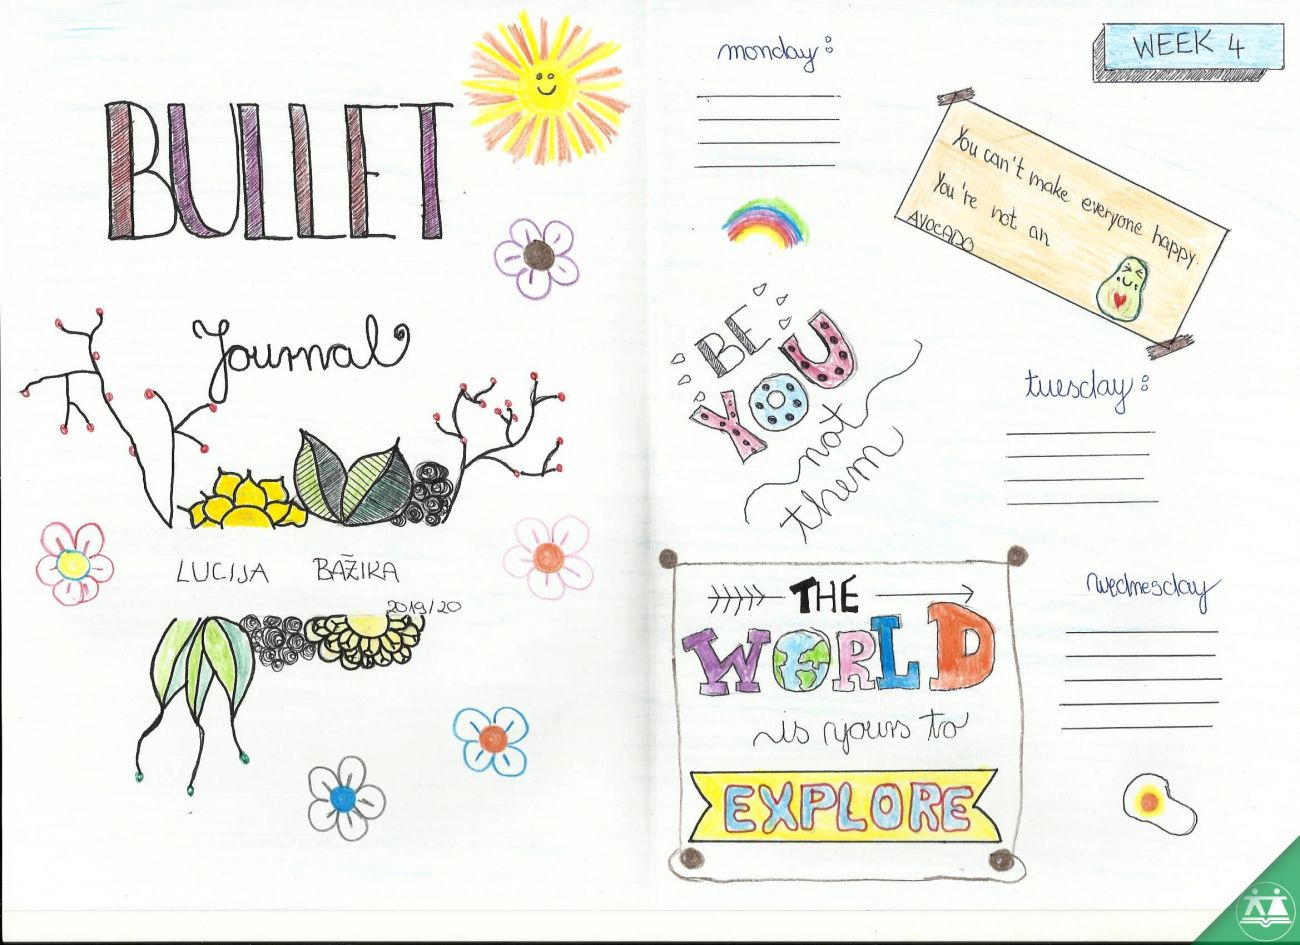 BULLET
Journal
LUCIJA BAŽIKA
2019/20
WEEK 4
monday:
You can't make everyone happy.
You're not an
AVOCADO
BE
YOU
not
them
tuesday:
THE
WORLD
is yours to
EXPLORE
wednesday